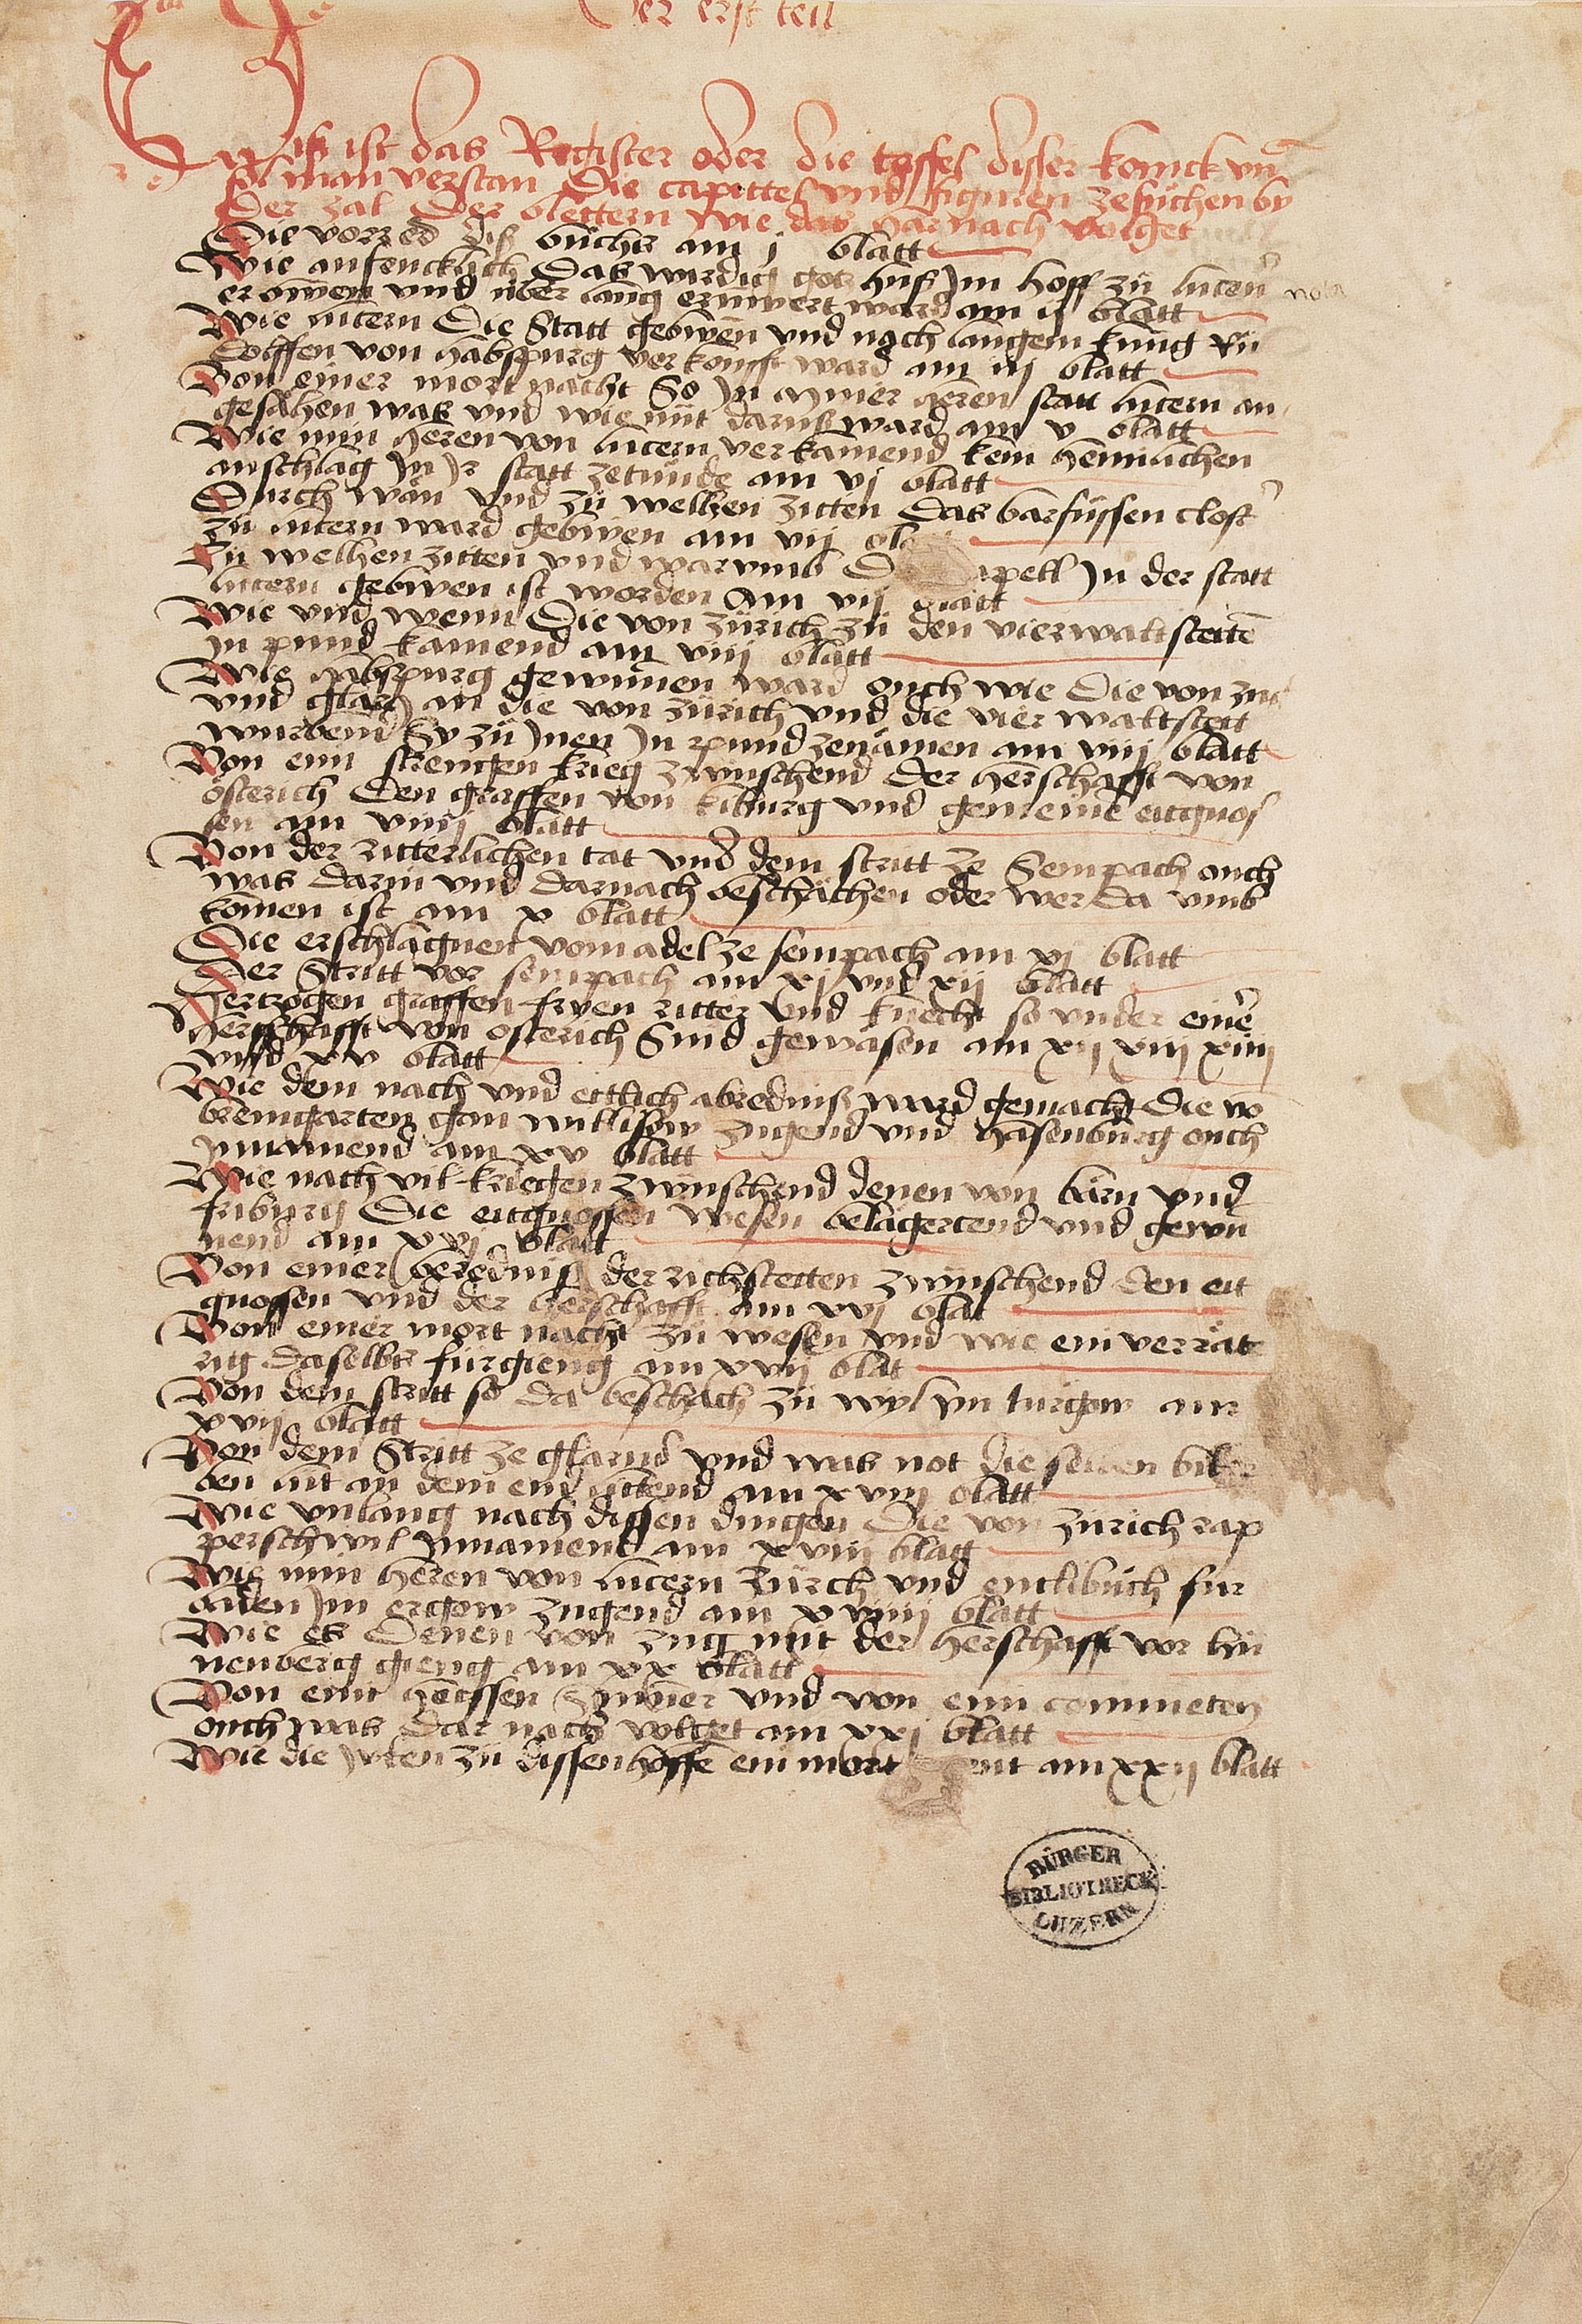 Der erst teil
Dis ist das Register oder die taffel disser konick vn̄
sol man verstan die capittel vnd figuren ze sůchen by
der zal der blettern wie das harnach volget
Die vorred dis bůchs am j blatt
Wie anfencklich das wirdig gotzhuß jm hoff zů lucern
erbuwen vnd über lang ernüwert ward am ij blatt
nota
Wie lucern die Statt gebwen vnd noch langem küng Rů
dolffen von habspurg verkoufft ward am iij blatt
Von einer mort nacht So jn miner heren statt lucern an
gesähen was vnd wie nüt daruß ward am v blatt
Wie min heren von lucern verkamend kein heimlichen
anschlag jn jr statt zetůnde am vj blatt
Durch wän vnd zů welhen zitten das barfůssen clost
zů lucern ward gebwen am vij bla
Zů welhen zitten vnd warumb D apell jn der statt
lucern gebwen ist worden am vij blatt
Wie vnd wenn die von zürich zů den vierwaltstettē
jn pund kamend am viij blatt
Wie habspurg gewunnen ward ouch wie die von zug
vnd glariß an die von zürich vnd die vier waltstett
wurbend Sy zů jnen jn pund zenämen am viij blatt
Von eim strengen krieg zwüschend der herschafft von
österich den graffen von kiburg vnd gemeine eitgnos
sen am viiij blatt
Von der ritterlichen tat vnd dem stritt ze Sempach ouch
was darin vnd darnach beschächen oder wer da vmb
komen ist am x blatt
Die erschlagnen vom adel ze sempach am xj blatt
Der Stritt vor sempach am xj vnd xij blatt
Hertzogen graffen fryen ritter vnd knecht so vnder einer
herschafft von österich Sind gewäsen am xij xiij xiiij
vnd xv blatt
Wie dem nach vnd ettlich abredniß ward gemacht die vō
bremgarten gan willisow zugend vnd hasenburg ouch
ynnamend am xv blatt
Wie nach vil kriegen zwüschend denen von bärn vnd
friburg die eitgnossen wesen belägertend vnd gewu
nend am xvj blatt
Von einer beredniß der richstetten zwüschend den eit
gnossen vnd der herschafft am xvj blat
Von einer mort nacht zů wesen vnd wie ein verrät
rig daselbs fürgieng am xvij blat
Von dem stritt so da beschach zů wyl ym turgow am
xvij blatt
Von dem Stritt ze glarus vnd was not die selben bi
ben lüt an dem end littend am xviij blatt
Wie vnlang nach dissen dingen die von zürich rap
perschwil ynnamend am xviij blag
Wie min heren von lucern zürch vnd entlibůch für
aden jm ergow zugend am xviiij blatt
Wie es denen von zug mit der herschafft vor hü
nenberg gieng am xx blatt
Von eim heissen summer vnd von eim commeten
ouch was dar nach volget am xxj blatt
Wie die juden zů dissenhoffē ein mort am xxij blatt
BÜRGER
BIBLIOTHECK
LUZERN